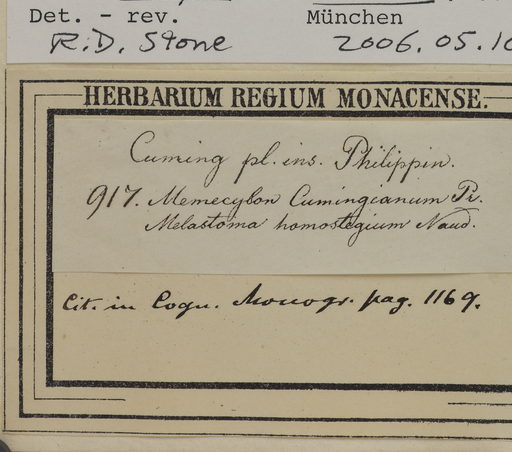 Det. - rev.
München
R.D. Stone
2006.05.10
HERBARIUM REGIUM MONACENSE.
Cuming pl. ins. Philippin.
917. Memecylon Cumingianum Pr.
Melastoma homostegium Naud.
Cit. in Cogn. Monogr. pag. 1169.